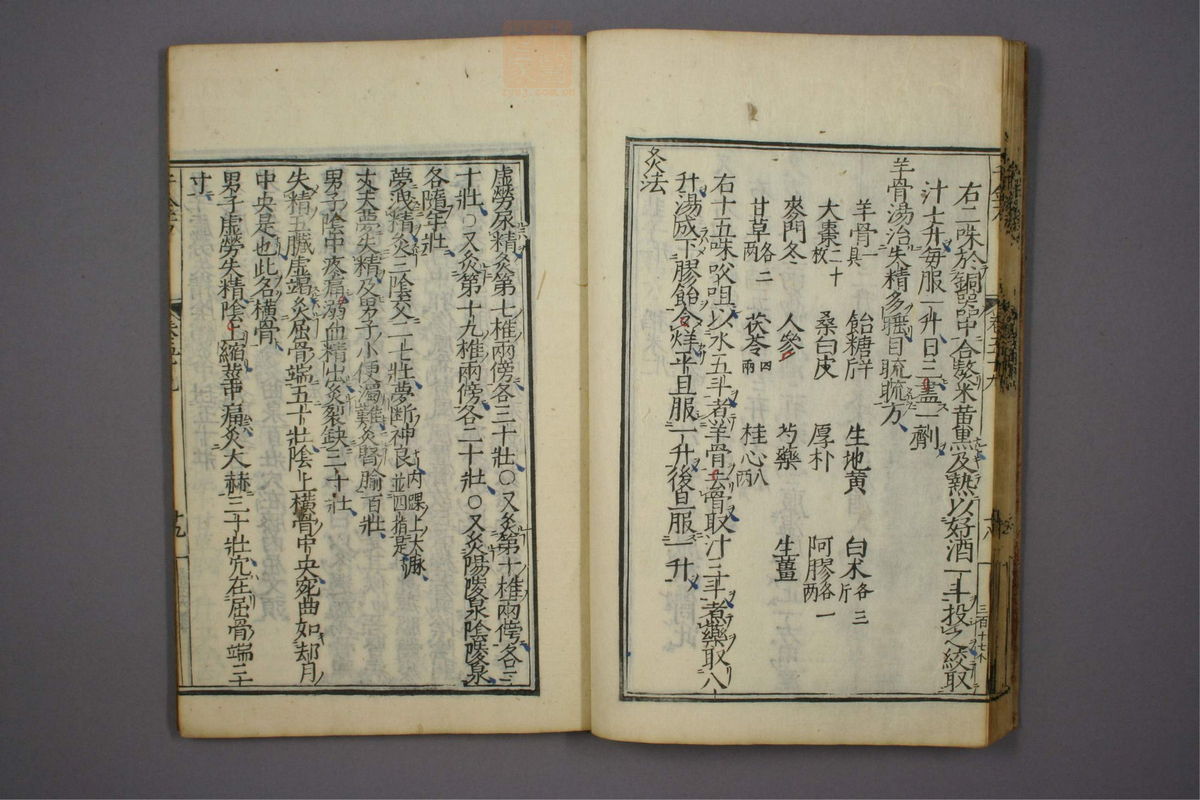 右二味於銅器中合熬米黄黒及熱以好酒一斗投之絞取
汁七升毎服一升日三盡一劑
羊骨湯治失精多睡目䀮䀮方
羊骨一具 飴糖半斤 生地黄 白术各三斤
大棗二十枚 桑白皮 厚朴 阿膠各一两
麥門冬 人參 芍藥 生薑
甘草各二两 茯苓四两 桂心八两
右十五味㕮咀以水五斗煮羊骨去骨取汁三斗煮藥取八
升湯成下膠飴令烊平旦服一升後旦服一升
灸法
虚勞尿精灸第七椎兩傍各三十壯○又灸第十椎兩傍各三
十壯○又灸第十九椎兩傍各二十壯○又灸陽陵泉陰陵泉
各隨年壯
夢洩精灸三陰交二七壯夢斷神良内踝上大脉並四指是
丈夫夢失精及男子小便濁難灸腎腧百壯
男子陰中疼痛溺血精出灸裂缺三十壯
失精五臟虚竭灸屈骨端五十壯陰上横骨中央宛曲如却月
中央是也此名横骨
男子虚勞失精陰上縮莖中痛灸大赫三十壯穴在屈骨端三
寸